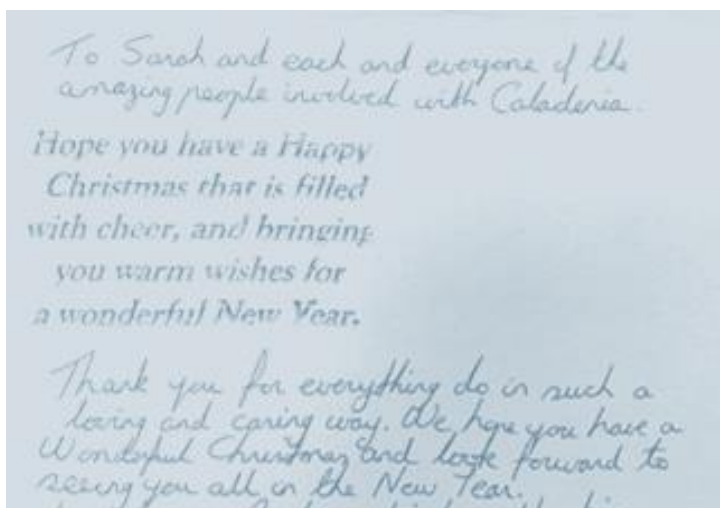 To Sarah and each and everyone of the
amazing people involved with Caladenia.
Hope you have a Happy
Christmas that is filled
with cheer, and bringing
you warm wishes for
a wonderful New Year.
Thank you for everything do in such a
loving and caring way. We hope you have a
Wonderful Christmas and look forward to
seeing you all in the New Year.